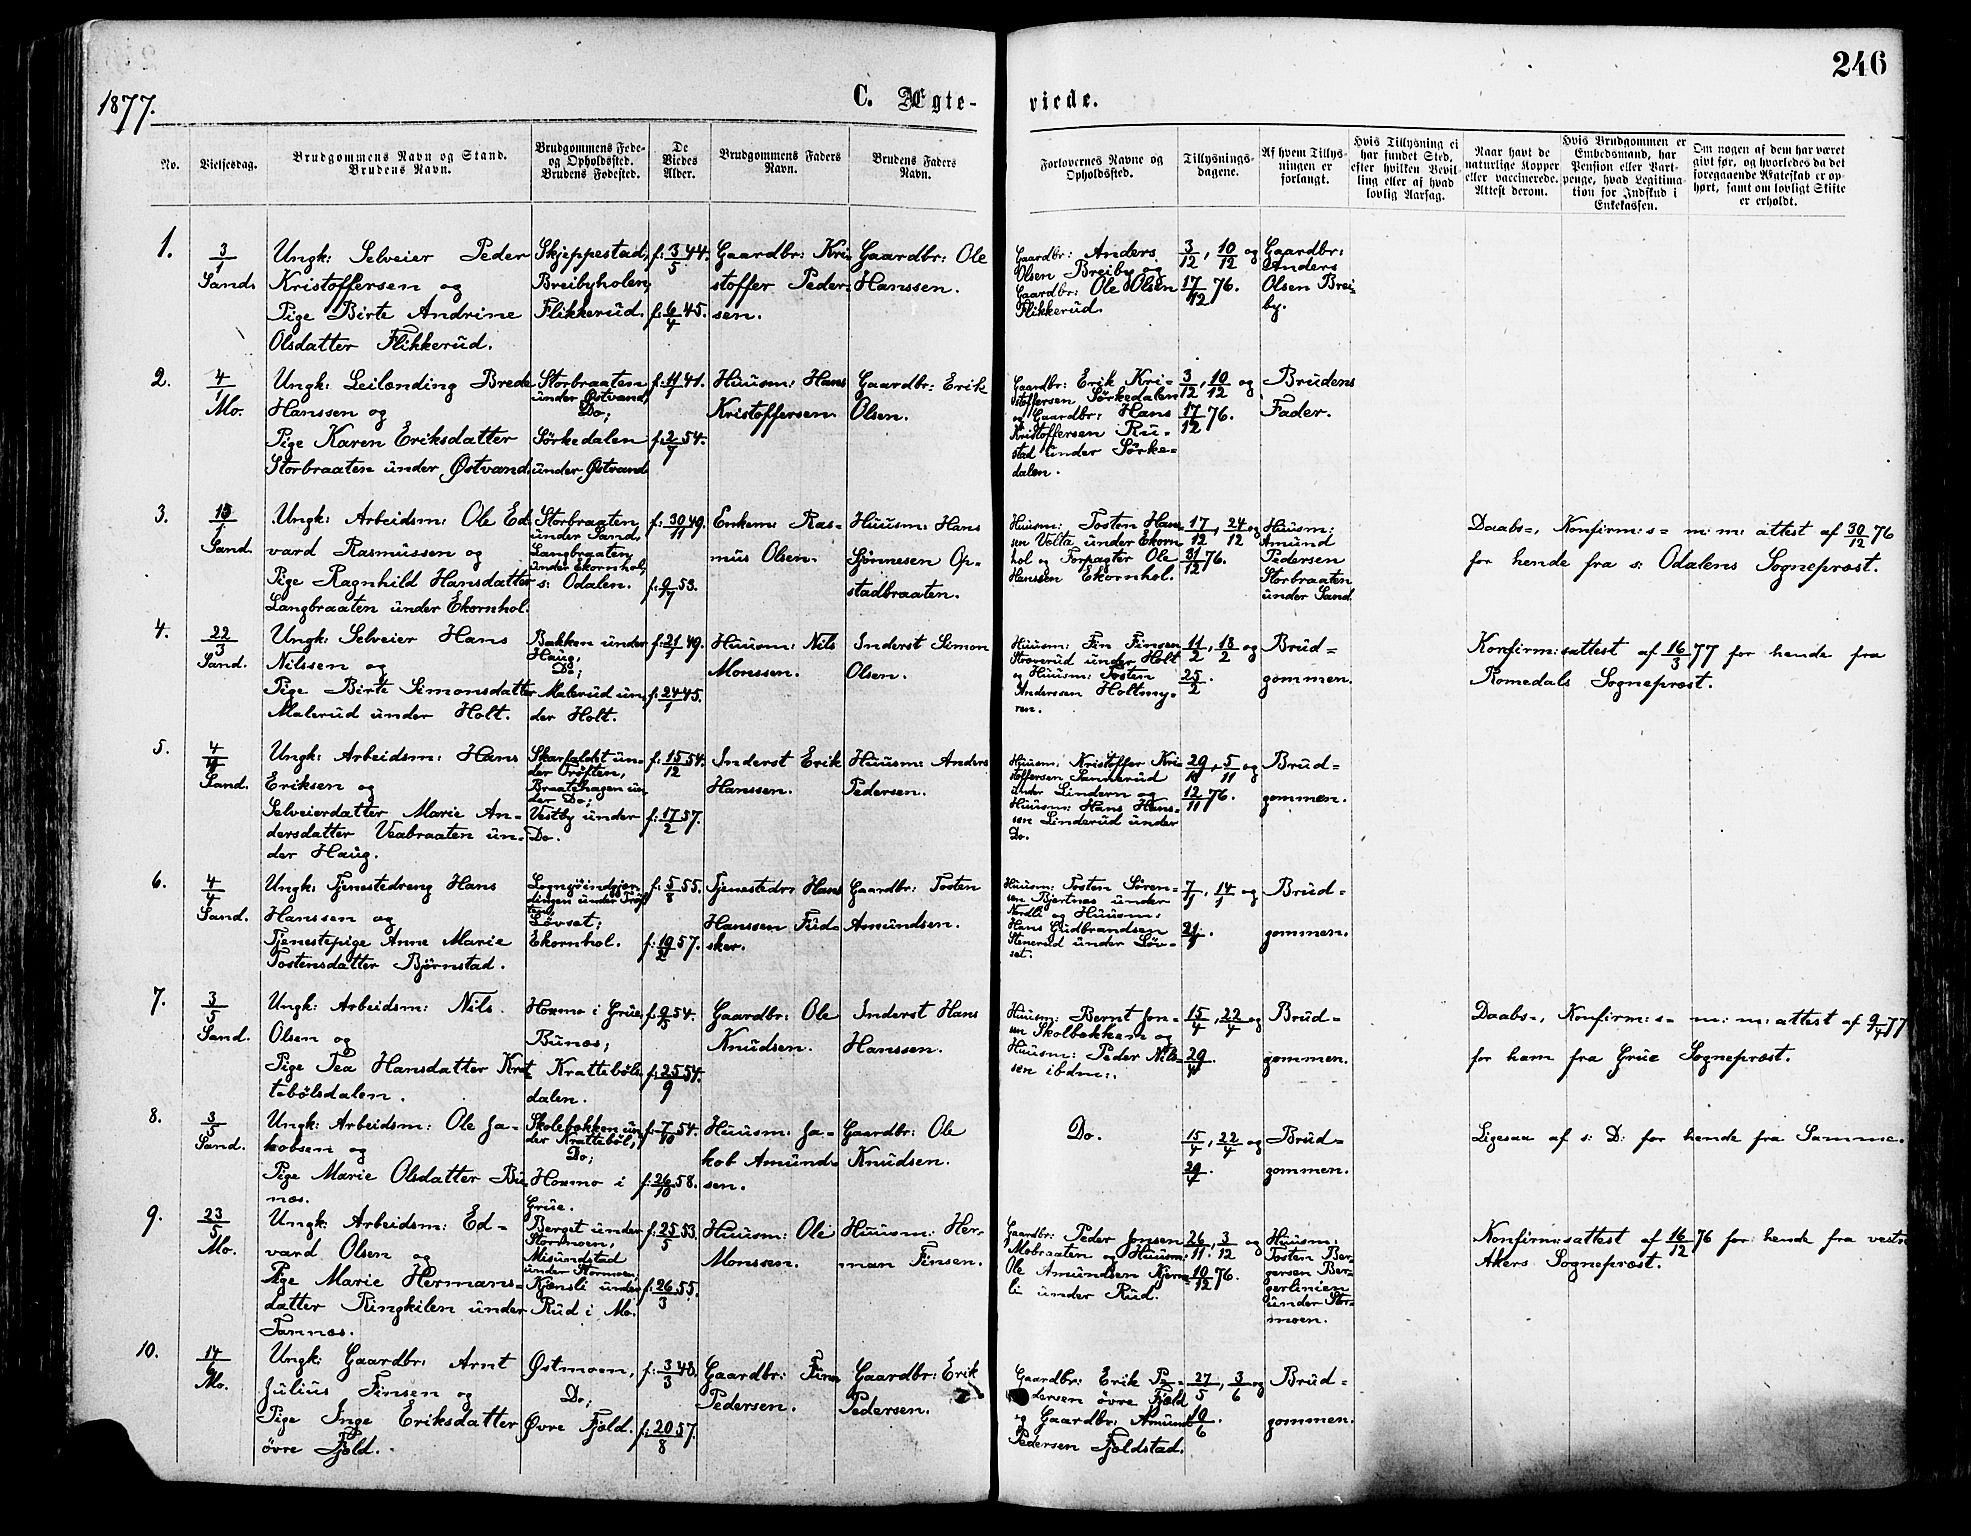 246
1877.
C. Ægte- viede.
No.
Vielsesdag.
Brudgommens Navn og Stand.
Brudens Navn.
Brudgommens Føde-
og Opholdssted.
Brudens Fødested.
De
Viedes
Alder.
Brudgommens Faders
Navn.
Brudens Faders
Navn.
Forlovernes Navne og
Opholdssted.
Tillysnings-
dagene.
Af hvem Tillys-
ningen er
forlangt.
Hvis Tillysning ei
har fundet Sted,
efter hvilken Bevil-
ling eller af hvad
lovlig Aarsag.
Naar havt de
naturlige Kopper
eller vaccinerede.
Attest derom.
Hvis Brudgommen er
Embedsmand, har
Pension eller Vart-
penge, hvad Legitima-
tion for Indskud i
Enkekassen.
Om nogen af dem har været
givt før, og hvorledes da det
foregaaende Ægteskab er op-
hørt, samt om lovligt Skifte
er erholdt.
1.
3/1
Sand.
Ungk: Selveier Peder
Kristoffersen og
Pige Birte Andrine
Olsdatter Flikkerud.
Skjeppestad,
Breibyholen,
Flikkerud.
f: 3/5 44.
f: 6/4 45.
Gaardbr: Kri
stoffer Peder-
sen.
Gaardbr: Ole
Hanssen.
Gaardbr: Anders
Olsen Breiby og
Gaardbr: Ole Olsen
Flikkerud.
3/12, 10/12 og
17/12 76.
Gaardbr:
Anders
Olsen Brei-
by.
2.
4/1
Mo.
Ungk: Leilænding Brede
Hanssen og
Pige Karen Eriksdatter
Storbraaten under Østvand.
Storbraaten
under Østvand,
Do;
Sørkedalen
under Østvand
f: 11/1 41.
f: 2/7 54.
Huusm: Hans
Kristoffersen.
Gaardbr: Erik
Olsen.
Gaardbr: Erik Kri-
stoffersen Sørkedalen
og Gaardbr: Hans
Kristoffersen Ru-
stad under Sørke-
dalen.
3/12, 10/12 og
17/12 76.
Brudens
Fader.
3.
Sand.
Ungk: Arbeidsm: Ole Ed
vard Rasmussen og
Pige Ragnhild Hansdatter
Langbraaten under Ekornhol.
Storbraaten
under Sand,
Langbraaten
under Ekornhol,
s: Odalen.
f: 30/11 49.
f: 9/7 53.
Enkem: Ras-
mus Olsen.
Huusm: Hans
Sjønnesen Op-
stadbraaten.
Huusm: Tosten Hans
sen Velta under Ekorn
hol og Forpagter Ole
Hanssen Ekornhol.
17/12, 24/12 og
31/12 76.
Huusm:
Amund
Pedersen
Storbraaten
under Sand.
Daabs-, Konfirm:s- m: m: attest af 30/12 76
for hende fra s: Odalens Sogneprest.
4.
22/3
Sand.
Ungk: Selveier Hans
Nilssen og
Pige Birte Simonsdatter
Malerud under Holt.
Bakken under
Haug,
Do;
Malerud un-
der Holt.
f: 21/1 49.
f: 24/1 45.
Huusm: Nils
Monssen.
Inderst Simon
Olsen.
Huusm: Fin Finsen
under Holt
og Huusm: Tosten
Anderssen Holtmy-
ren.
11/2, 18/2 og
25/2.
Brud-
gommen.
Konfirm:sattest af 16/3 77 for hende fra
Romedals Sogneprest.
5.
Sand.
Ungk: Arbeidsm: Hans
Eriksen og
Selveierdatter Marie An-
dersdatter Veabraaten un-
der Haug.
un-
der Trøften,
Braatehagen un
der Do;
Vestby under
Do.
f: 15/12 54.
f: 17/2 57.
Inderst Erik
Hanssen.
Huusm: Anders
Pedersen.
Huusm: Kristoffer Kri-
stoffersen Sannerud
under Lindern og
Huusm: Hans Hans-
sen Linderud under
Do.
29/10, 5/11 og
12/11 76.
Brud-
gommen.
6.
4/4
Sand.
Ungk: Tjenestedreng Hans
Hanssen og
Tjenestepige Anne Marie
Tostensdatter Bjørnstad.
under Trøf
ten,
Løvset;
Ekornhol.
f: 5/8 55.
f: 19/2 57.
Tjenestedr: Hans
Hanssen Fud-
sker.
Gaardbr: Tosten
Amundsen.
Huusm: Tosten Søren-
sen Bjertnes under
Nordli og Huusm:
Hans Gudbrandsen
Stenerud under Løv-
set.
7/1, 14/1 og
21/1.
Brud-
gommen.
7.
3/5
Sand.
Ungk: Arbeidsm: Nils
Olsen og
Pige Pea Hansdatter Krat
tebølsdalen.
Hoxmo i Grue
Bunæs;
Krattebøls
dalen.
f: 9/5 54.
f: 25/9 54.
Gaardbr: Ole
Knudsen.
Inderst Hans
Hanssen.
Huusm: Bernt Jon-
sen Skolbekken og
Huusm: Peder Nils-
sen ibdm:.
15/4, 22/4 og
29/4.
Brud-
gommen.
Daabs-, Konfirm:s- m: m: attest af 9/4 77
for ham fra Grue Sogneprest.
8.
3/5
Sand.
Ungk: Arbeidsm: Ole Ja-
kobsen og
Pige Marie Olsdatter Bu
næs.
Skolebekken un
der Krattebøl,
Do;
Hoxmo i
Grue.
f: 7/10 54.
f: 26/10 58.
Huusm: Ja-
kob Amund-
sen.
Gaardbr: Ole
Knudsen.
Do.
15/4, 22/4 og
29/4.
Brud-
gommen.
Ligesaa af s: D: for hende fra Samme.
9.
23/5
Mo.
Ungk: Arbeidsm: Ed-
vard Olsen og
Pige Marie Hermans-
datter Ringkilen under
Tannæs.
Berget under
Stormoen,
Misundstad
under Stormoen,
Kjønsli under
Rud i Mo.
f: 25/5 53.
f: 26/3 55.
Huusm: Ole
Monssen.
Huusm: Her-
man Finsen.
Gaardbr: Peder Jonsen
Mobraaten og Huusm:
Ole Amundsen Kjøns-
li under Rud.
26/11, 3/12 og
10/12 76.
Huusm:
Tosten Ber-
gersen Ber-
gerlinien
under Stor-
moen.
Konfirm:sattest af 16/12 76 for hende fra vestre
Akers Sogneprest.
10.
14/6
Mo.
Ungk: Gaardbr: Arnt
Julius Finsen og
Pige Inge Eriksdatter
øvre Fjeld.
Østmoen,
Do;
Øvre Fjeld.
f: 3/3 48.
f: 20/8 57.
Gaardbr: Finn
Pedersen.
Gaardbr: Erik
Pedersen.
Gaardbr: Erik Pe-
dersen øvre Fjeld
og Gaardbr: Amund
Pedersen Fjeldstad.
27/5, 3/6 og
10/6.
Brud-
gommen.